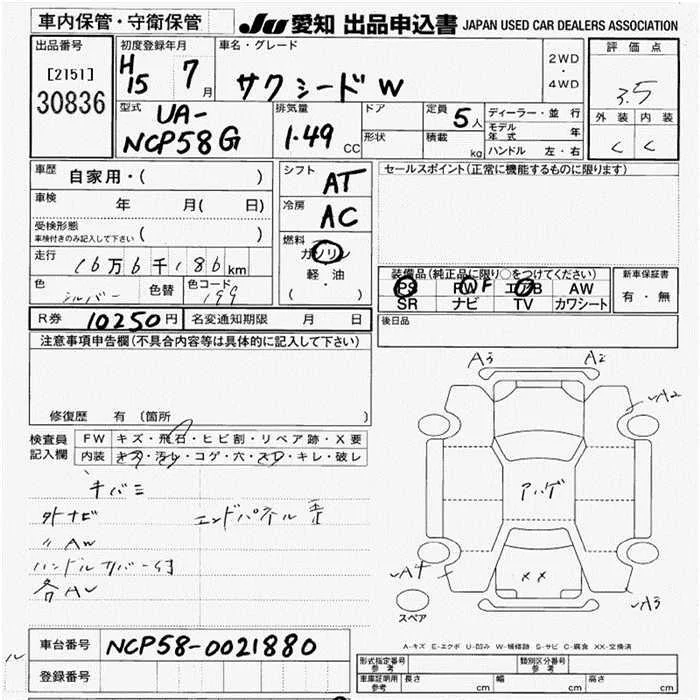 車内保管・守衛保管
JU 愛知 出品申込書 JAPAN USED CAR DEALERS ASSOCIATION
出品番号
[2151]
30836
初度登録年月
H15 7月
車名・グレード
サクシードW
2WD
・
4WD
評価点
3.5
外装 内装
C C
型式
UA-
NCP58G
排気量
1.49 CC
ドア
形状
定員 5人
積載 kg
ディーラー・並行
モデル年式 年
ハンドル 左・右
車歴 自家用・( )
車検 年 月( 日)
受検形態
車検付きのみ記入して下さい ( )
走行 16万6千186km
色 シルバー 色替 色コード 199
シフト AT
冷房 AC
燃料
ガソリン
軽・油
( ・ )
セールスポイント(正常に機能するものに限ります)
装備品(純正品に限り○をつけてください)
PS PW F エアB AW
SR ナビ TV カワシート
新車保証書
有・無
R券 10250円 名変通知期限 月 日
後日品
注意事項申告欄(不具合内容等は具体的に記入して下さい)
修復歴 有(箇所 )
検査員記入欄
FW キズ・飛石・ヒビ割・リペア跡・X要
内装 キズ・汚れ・コゲ・穴・スレ・キレ・破レ
キバミ
外ナビ エンドパネル歪
〃AW
ハンドルカバー付
A3 A2
A2
アハゲ
A4 ××
A3
スペア
A-キズ E-エクボ U-凹み W-補修跡 S-サビ C-腐食 XX-交換済
車台番号 NCP58-0021880
登録番号
形式指定番号 参考
類別区分番号 参考
車庫証明用 参考 長さ cm 幅 cm 高さ cm